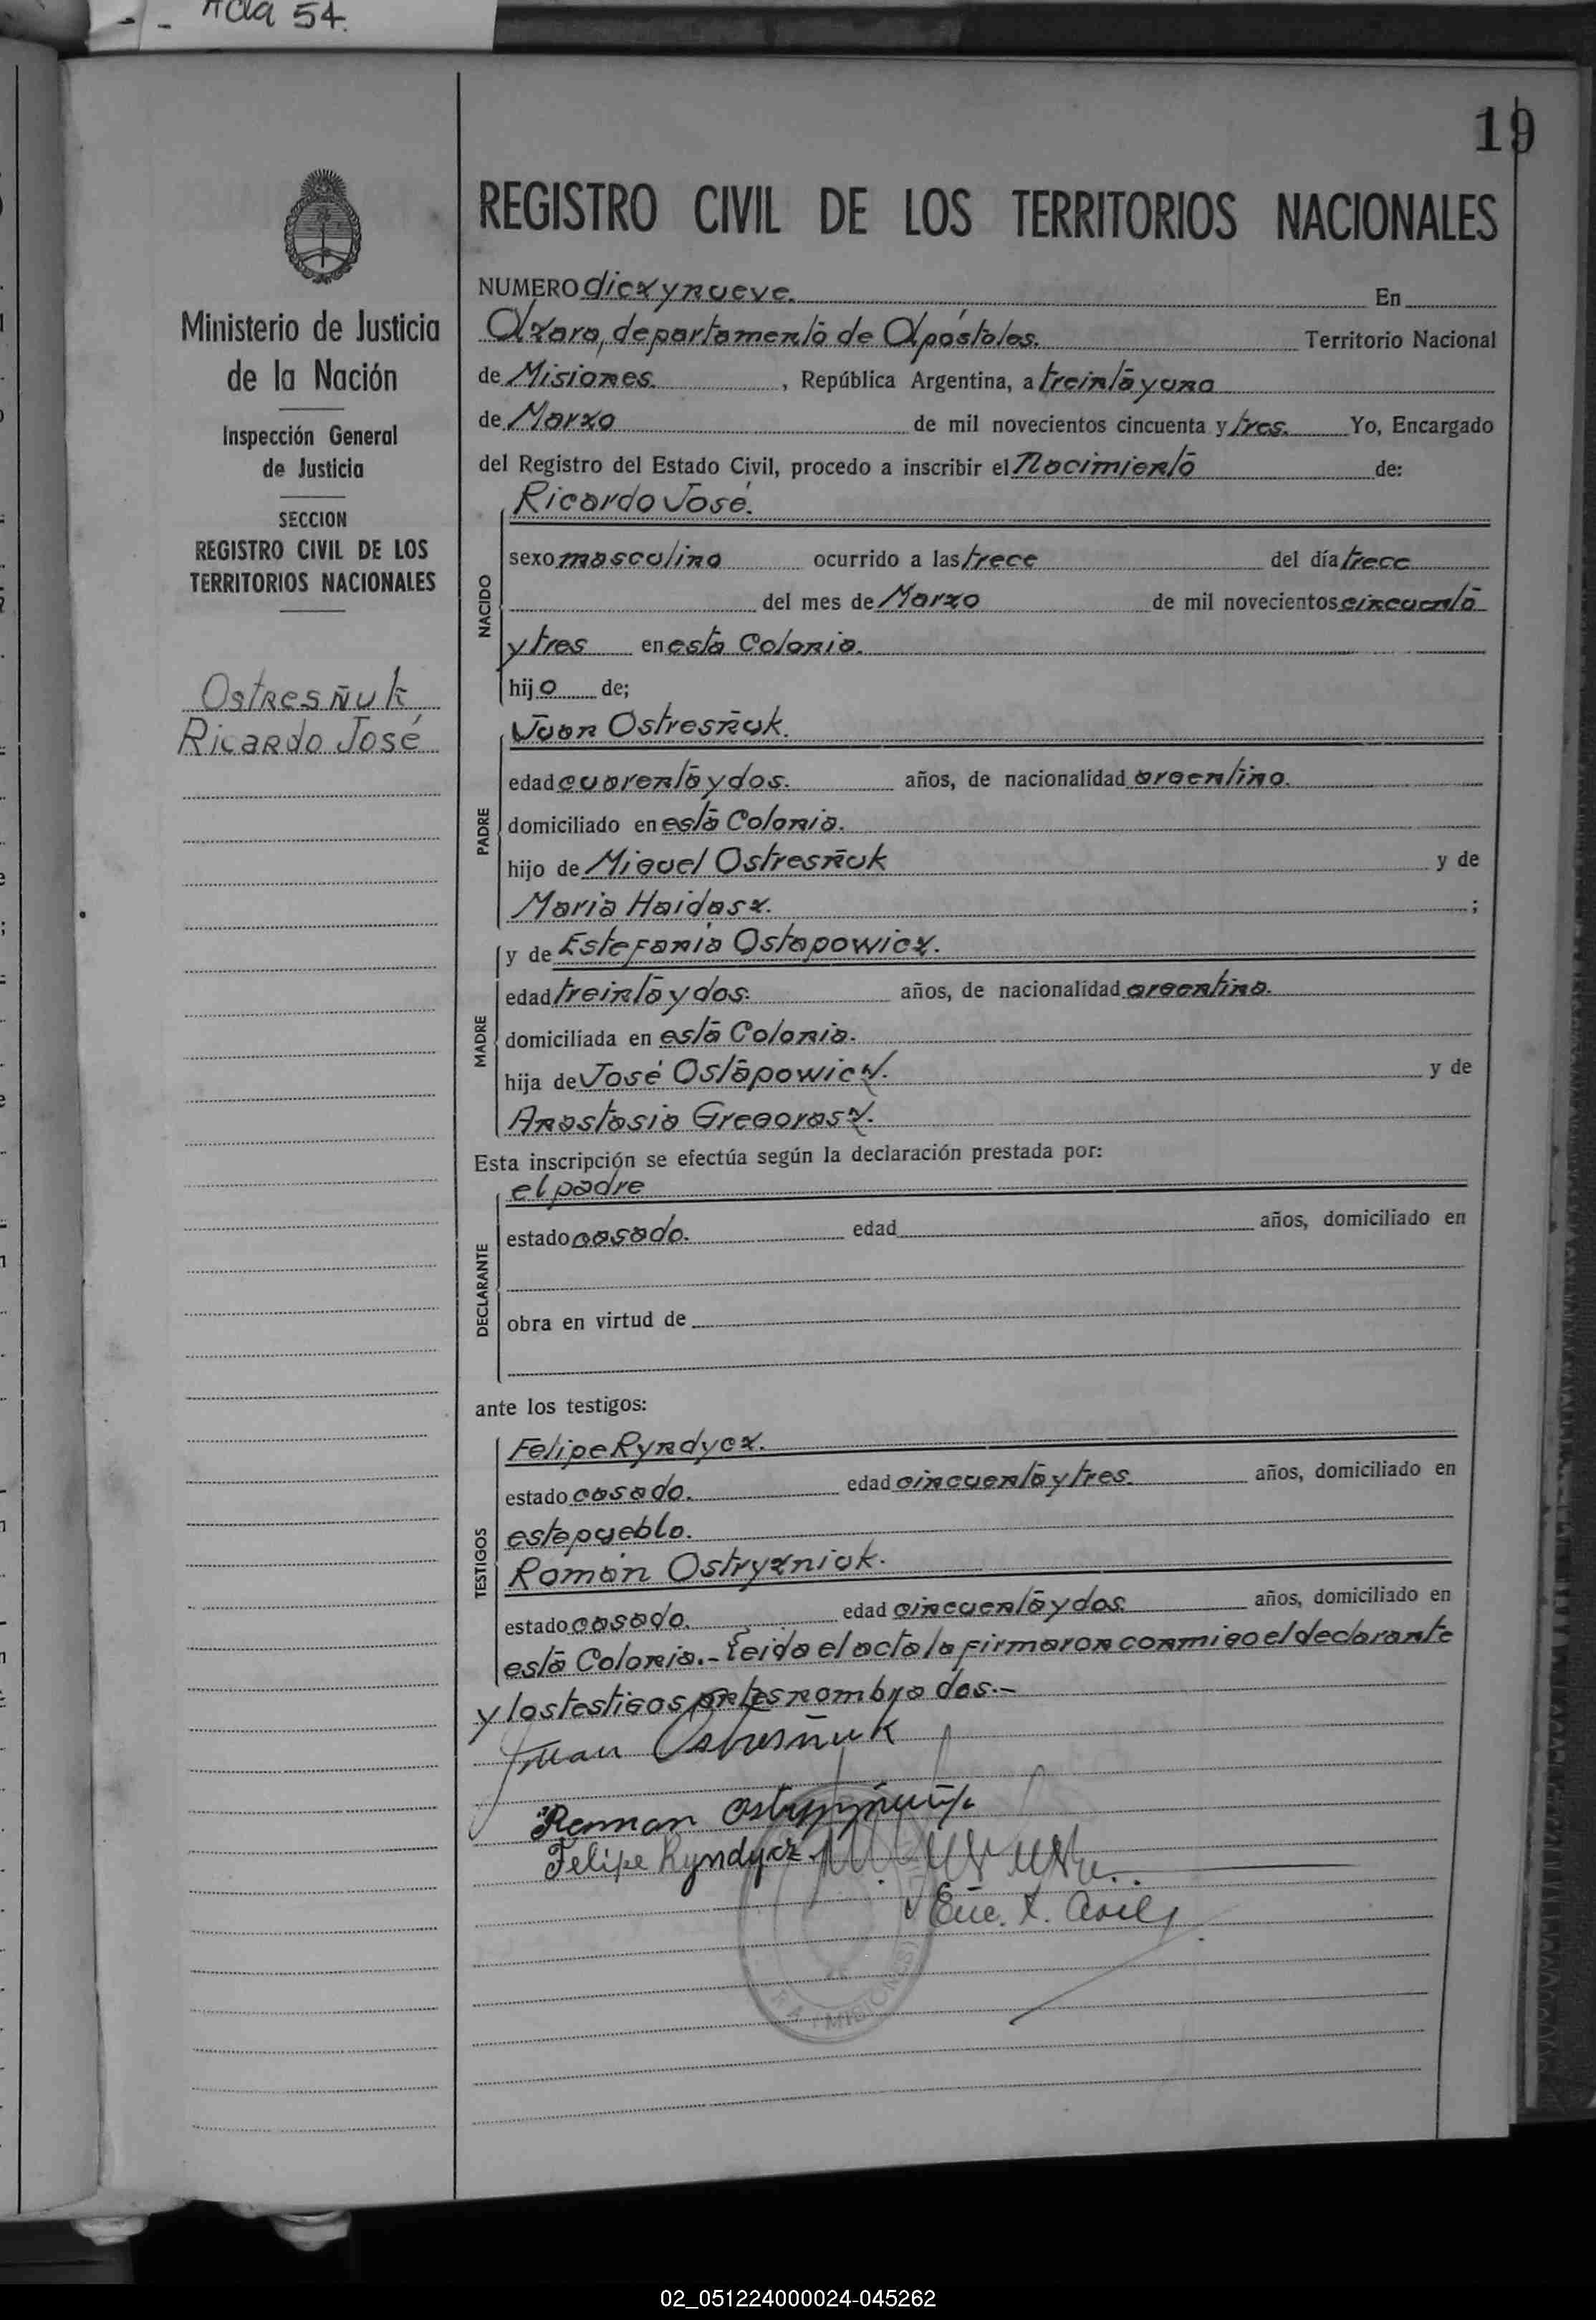 Acta 54.
19
Ministerio de Justicia
de la Nación
Inspección General
de Justicia
SECCION
REGISTRO CIVIL DE LOS
TERRITORIOS NACIONALES
Ostresñuk
Ricardo José
REGISTRO CIVIL DE LOS TERRITORIOS NACIONALES
NUMERO diez y nueve. En
Azara, departamento de Apóstoles. Territorio Nacional
de Misiones. , República Argentina, a treinta y uno
de Marzo de mil novecientos cincuenta y tres. Yo, Encargado
del Registro del Estado Civil, procedo a inscribir el Nacimiento de:
Ricardo José.
NACIDO
sexo masculino ocurrido a las trece del día trece
del mes de Marzo de mil novecientos cincuenta
y tres en esta Colonia.
hijo de;
Juan Ostresñuk.
PADRE
edad cuarenta y dos. años, de nacionalidad argentina.
domiciliado en esta Colonia.
hijo de Miguel Ostresñuk y de
Maria Haidasz. ;
y de Estefania Ostapowicz.
MADRE
edad treinta y dos. años, de nacionalidad argentina.
domiciliada en esta Colonia.
hija de José Ostapowicz. y de
Anastasia Gregorasz.
Esta inscripción se efectúa según la declaración prestada por:
el padre
DECLARANTE
estado casado. edad años, domiciliado en
obra en virtud de
ante los testigos:
Felipe Ryndycz.
TESTIGOS
estado casado. edad cincuenta y tres. años, domiciliado en
este pueblo.
Román Ostryzniuk.
estado casado. edad cincuenta y dos. años, domiciliado en
esta Colonia.- Leida el acta la firmaron conmigo el declarante
y los testigos antes nombrados.-
Juan Ostresñuk
Roman
Felipe Ryndycz
Enc. R. Civil
MISIONES
02_051224000024-045262